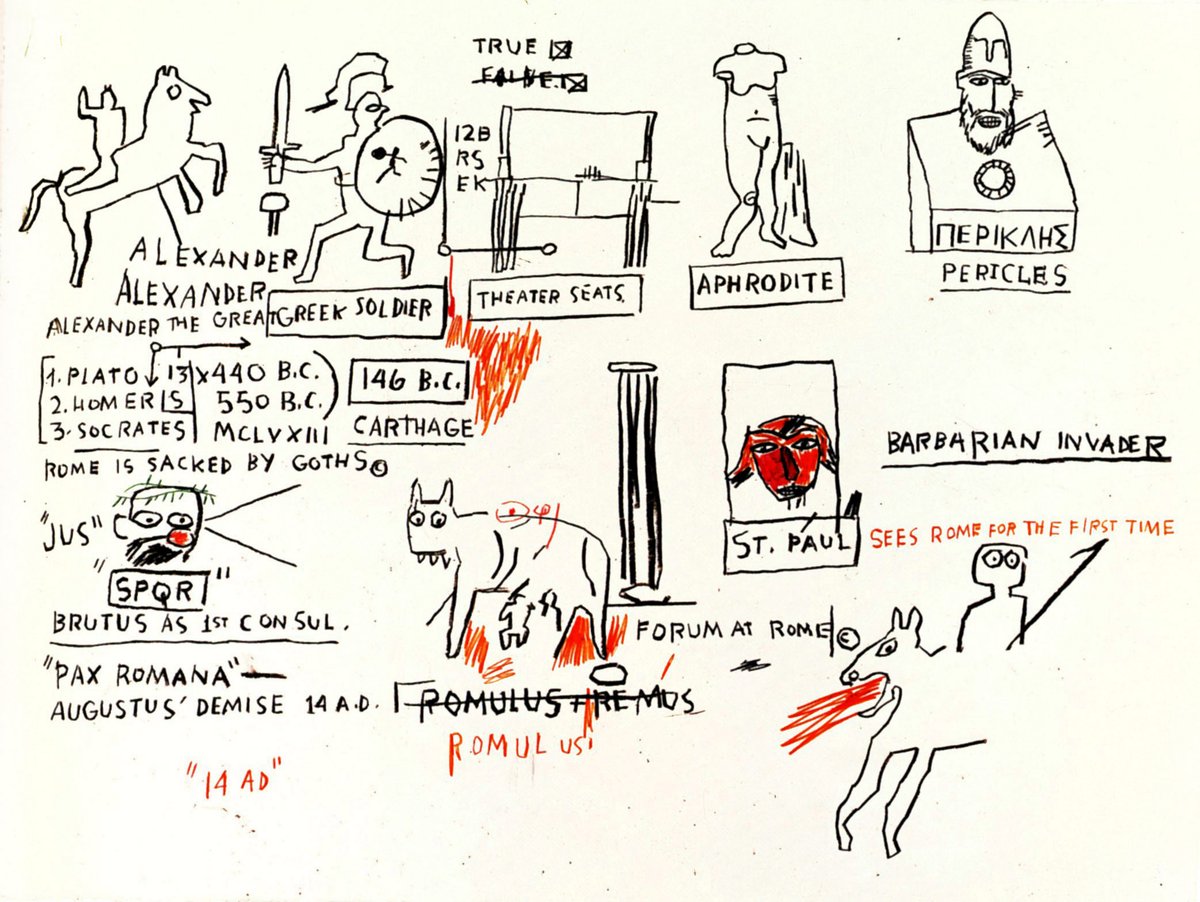 TRUE ☒
12B
RS
EK
ALEXANDER
ALEXANDER
ALEXANDER THE GREAT
GREEK SOLDIER
THEATER SEATS.
APHRODITE
ΠΕΡΙΚΛΗΣ
PERICLES
1. PLATO 13 x 440 B.C.
2. HOMER IS 550 B.C.
3. SOCRATES MCLVXIII
146 B.C.
CARTHAGE
ROME IS SACKED BY GOTHS©
"JUS"
"SPQR"
BRUTUS AS 1ST CONSUL.
"PAX ROMANA"—
AUGUSTUS' DEMISE 14 A.D.
"14 AD"
ROMULUS + REMUS
ROMULUS
FORUM AT ROME ©
ST. PAUL
BARBARIAN INVADER
SEES ROME FOR THE FIRST TIME